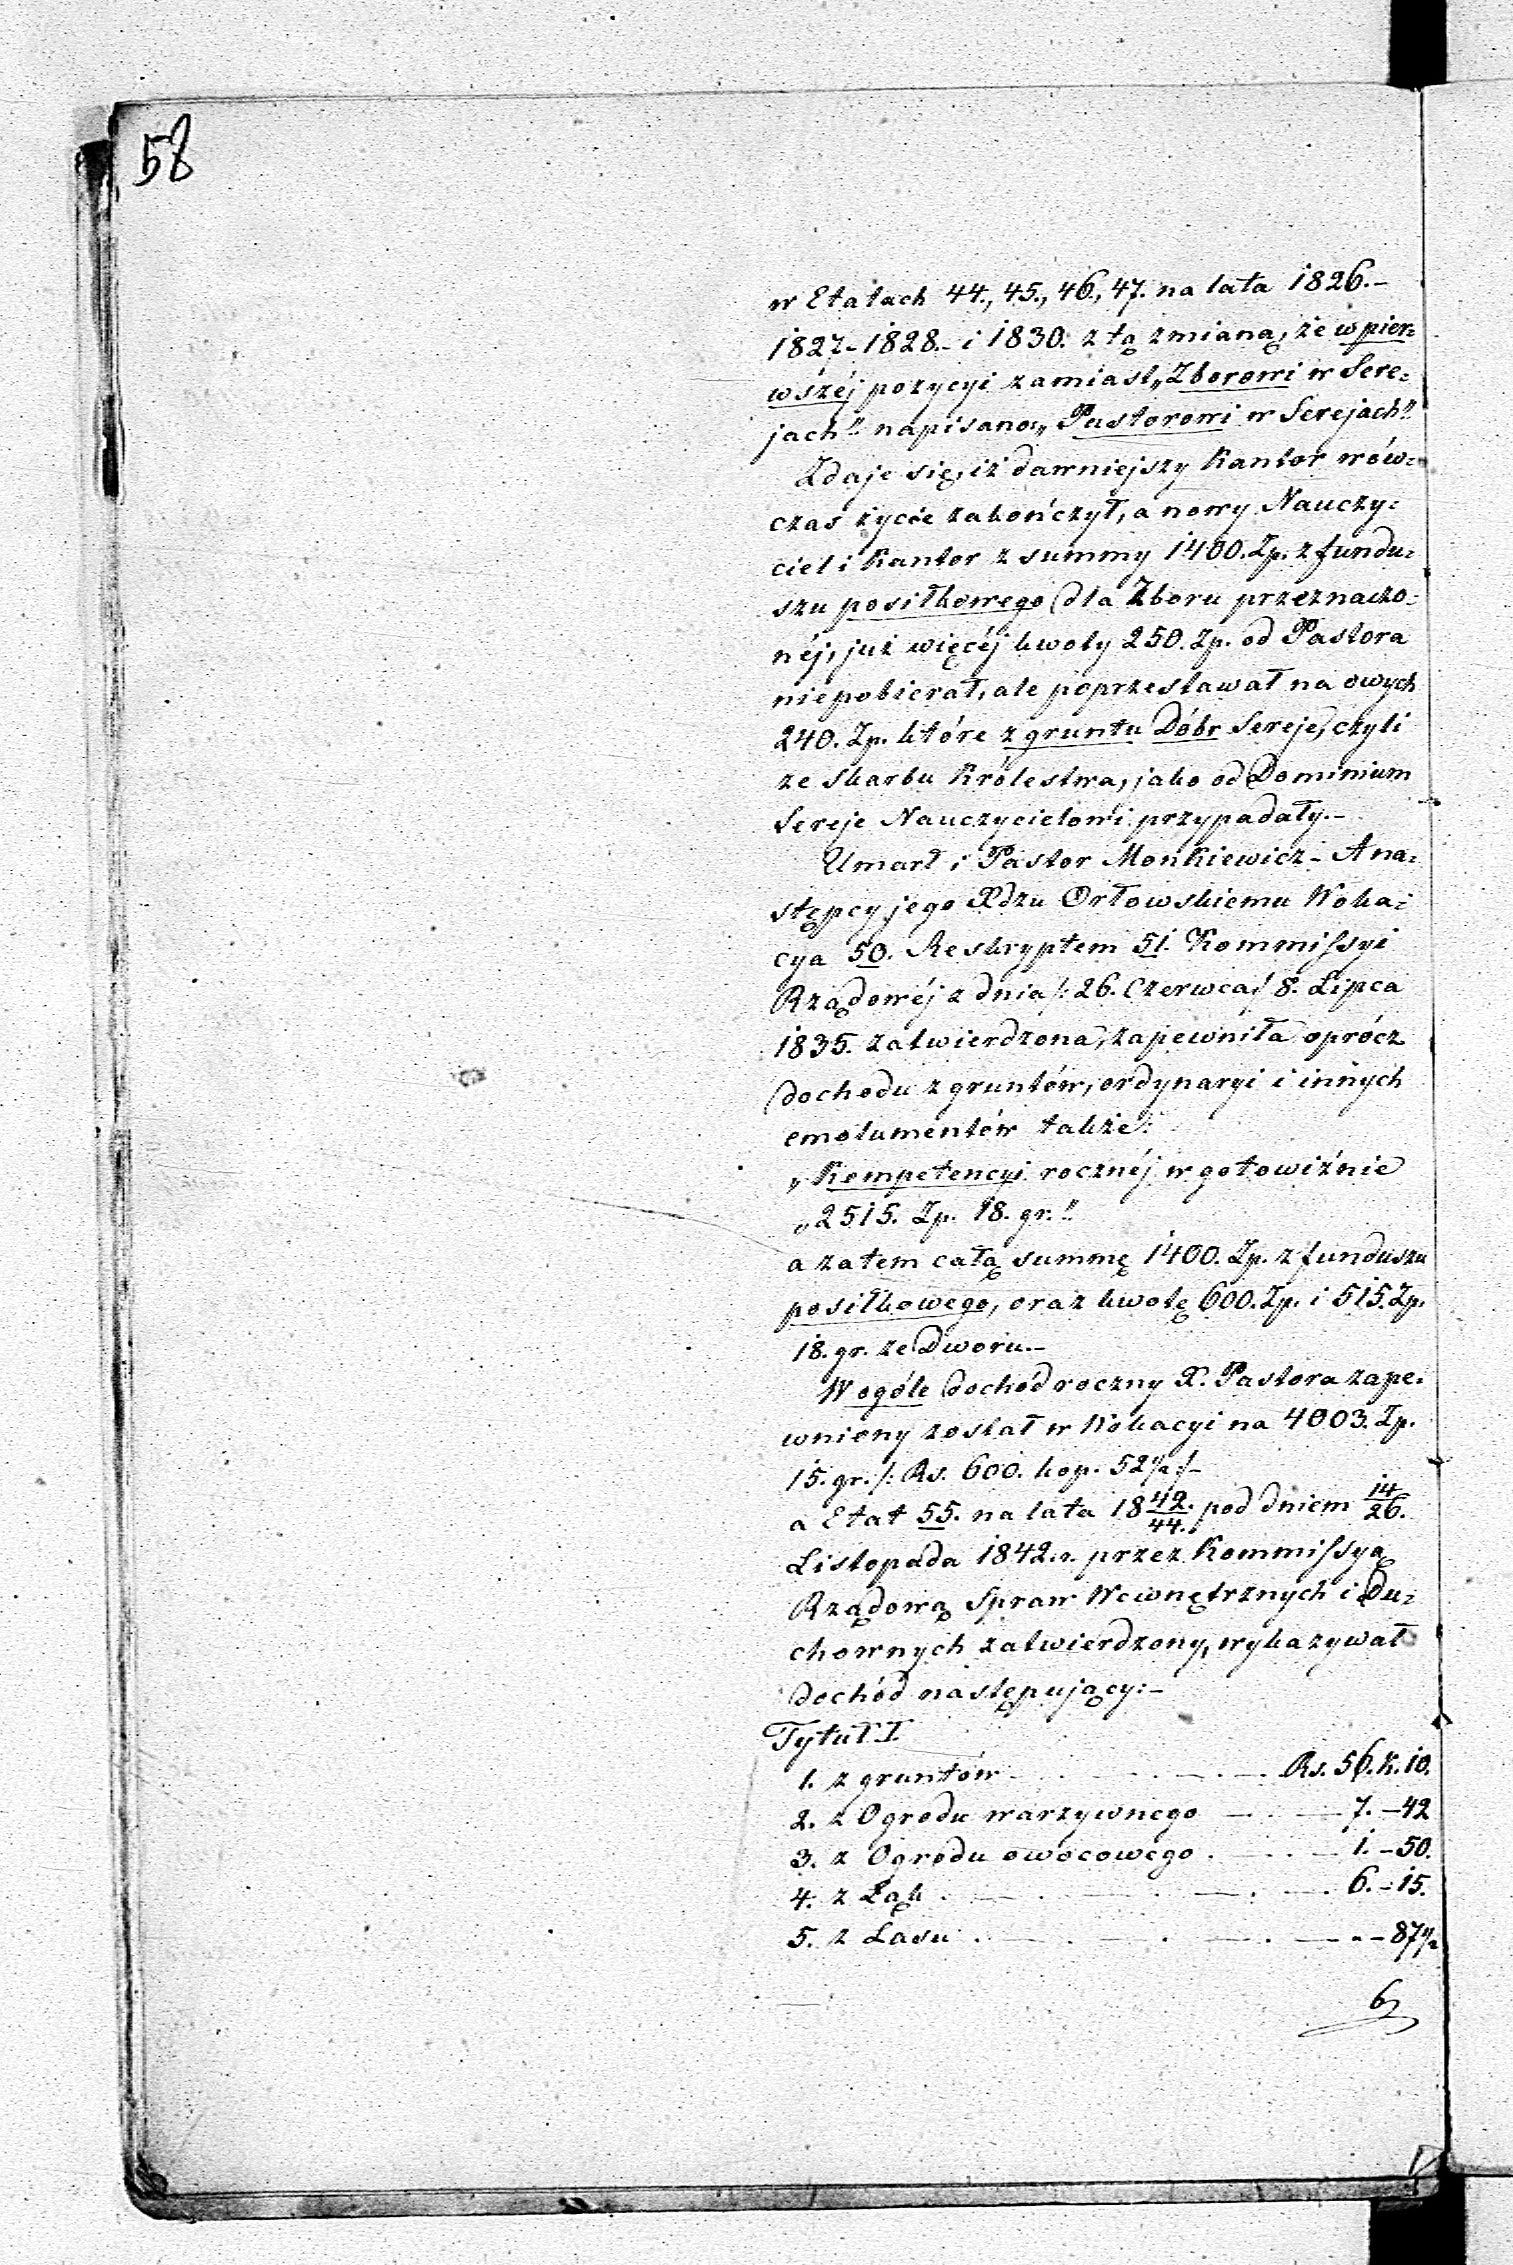 58
w Etatach 44., 45., 46., 47. na lata 1826.-
1827-1828.- i 1830. z tą zmianą, że w pier=
wszéj pozycyi zamiast „Zborowi w Sere=
jach" napisano „Pastorowi w Serejach"
Zdaje się, iż dawniejszy Kantor wów=
czas życie zakończył, a nowy Nauczy=
ciel i Kantor z summy 1400. Zp. z fundu=
szu posiłkowego dla Zboru przeznaczo=
néj, już więcéj kwoty 250. Zp. od Pastora
niepobierał, ale poprzestawał na owych
240. Zp. które z gruntu Dóbr Sereje, czyli
ze Skarbu Królestwa, jako od Dominium
Sereje Nauczycielowi przypadały.-
Umarł i Pastor Monkiewicz - A na=
stępcy jego Xdzu Orłowskiemu Woka=
cya 50. Reskryptem 51. Kommissyi
Rządowéj z dnia /: 26. Czerwca / 8. Lipca
1835. zatwierdzona, zapewniła oprócz
dochodu z gruntów, ordynaryi i innych
emolumentów także:
„Kompetencyi rocznéj w gotowiźnie
„2515. Zp. 18. gr."
a zatem całą summę 1400. Zp. z funduszu
posiłkowego, oraz kwotę 600. Zp. i 515. Zp.
18. gr. ze Dworu.-
W ogóle dochód roczny X. Pastora zape=
wniony został w Wokacyi na 4003. Zp.
15. gr. /: Rs. 600. kop. 52 1/2 /-
a Etat 55. na lata 18 42/44. pod dniem 14/26.
Listopada 1842. r. przez Kommissyą
Rządową Spraw Wewnętrznych i Du=
chownych zatwierdzony, wykazywał
dochód następujący:-
Tytuł I.
1. z gruntów Rs. 56. K. 10.
2. z Ogrodu warzywnego 7. - 42
3. z Ogrodu owocowego 1. - 50.
4. z Łąk 6. - 15.
5. z Lasu - - 87 1/2
6